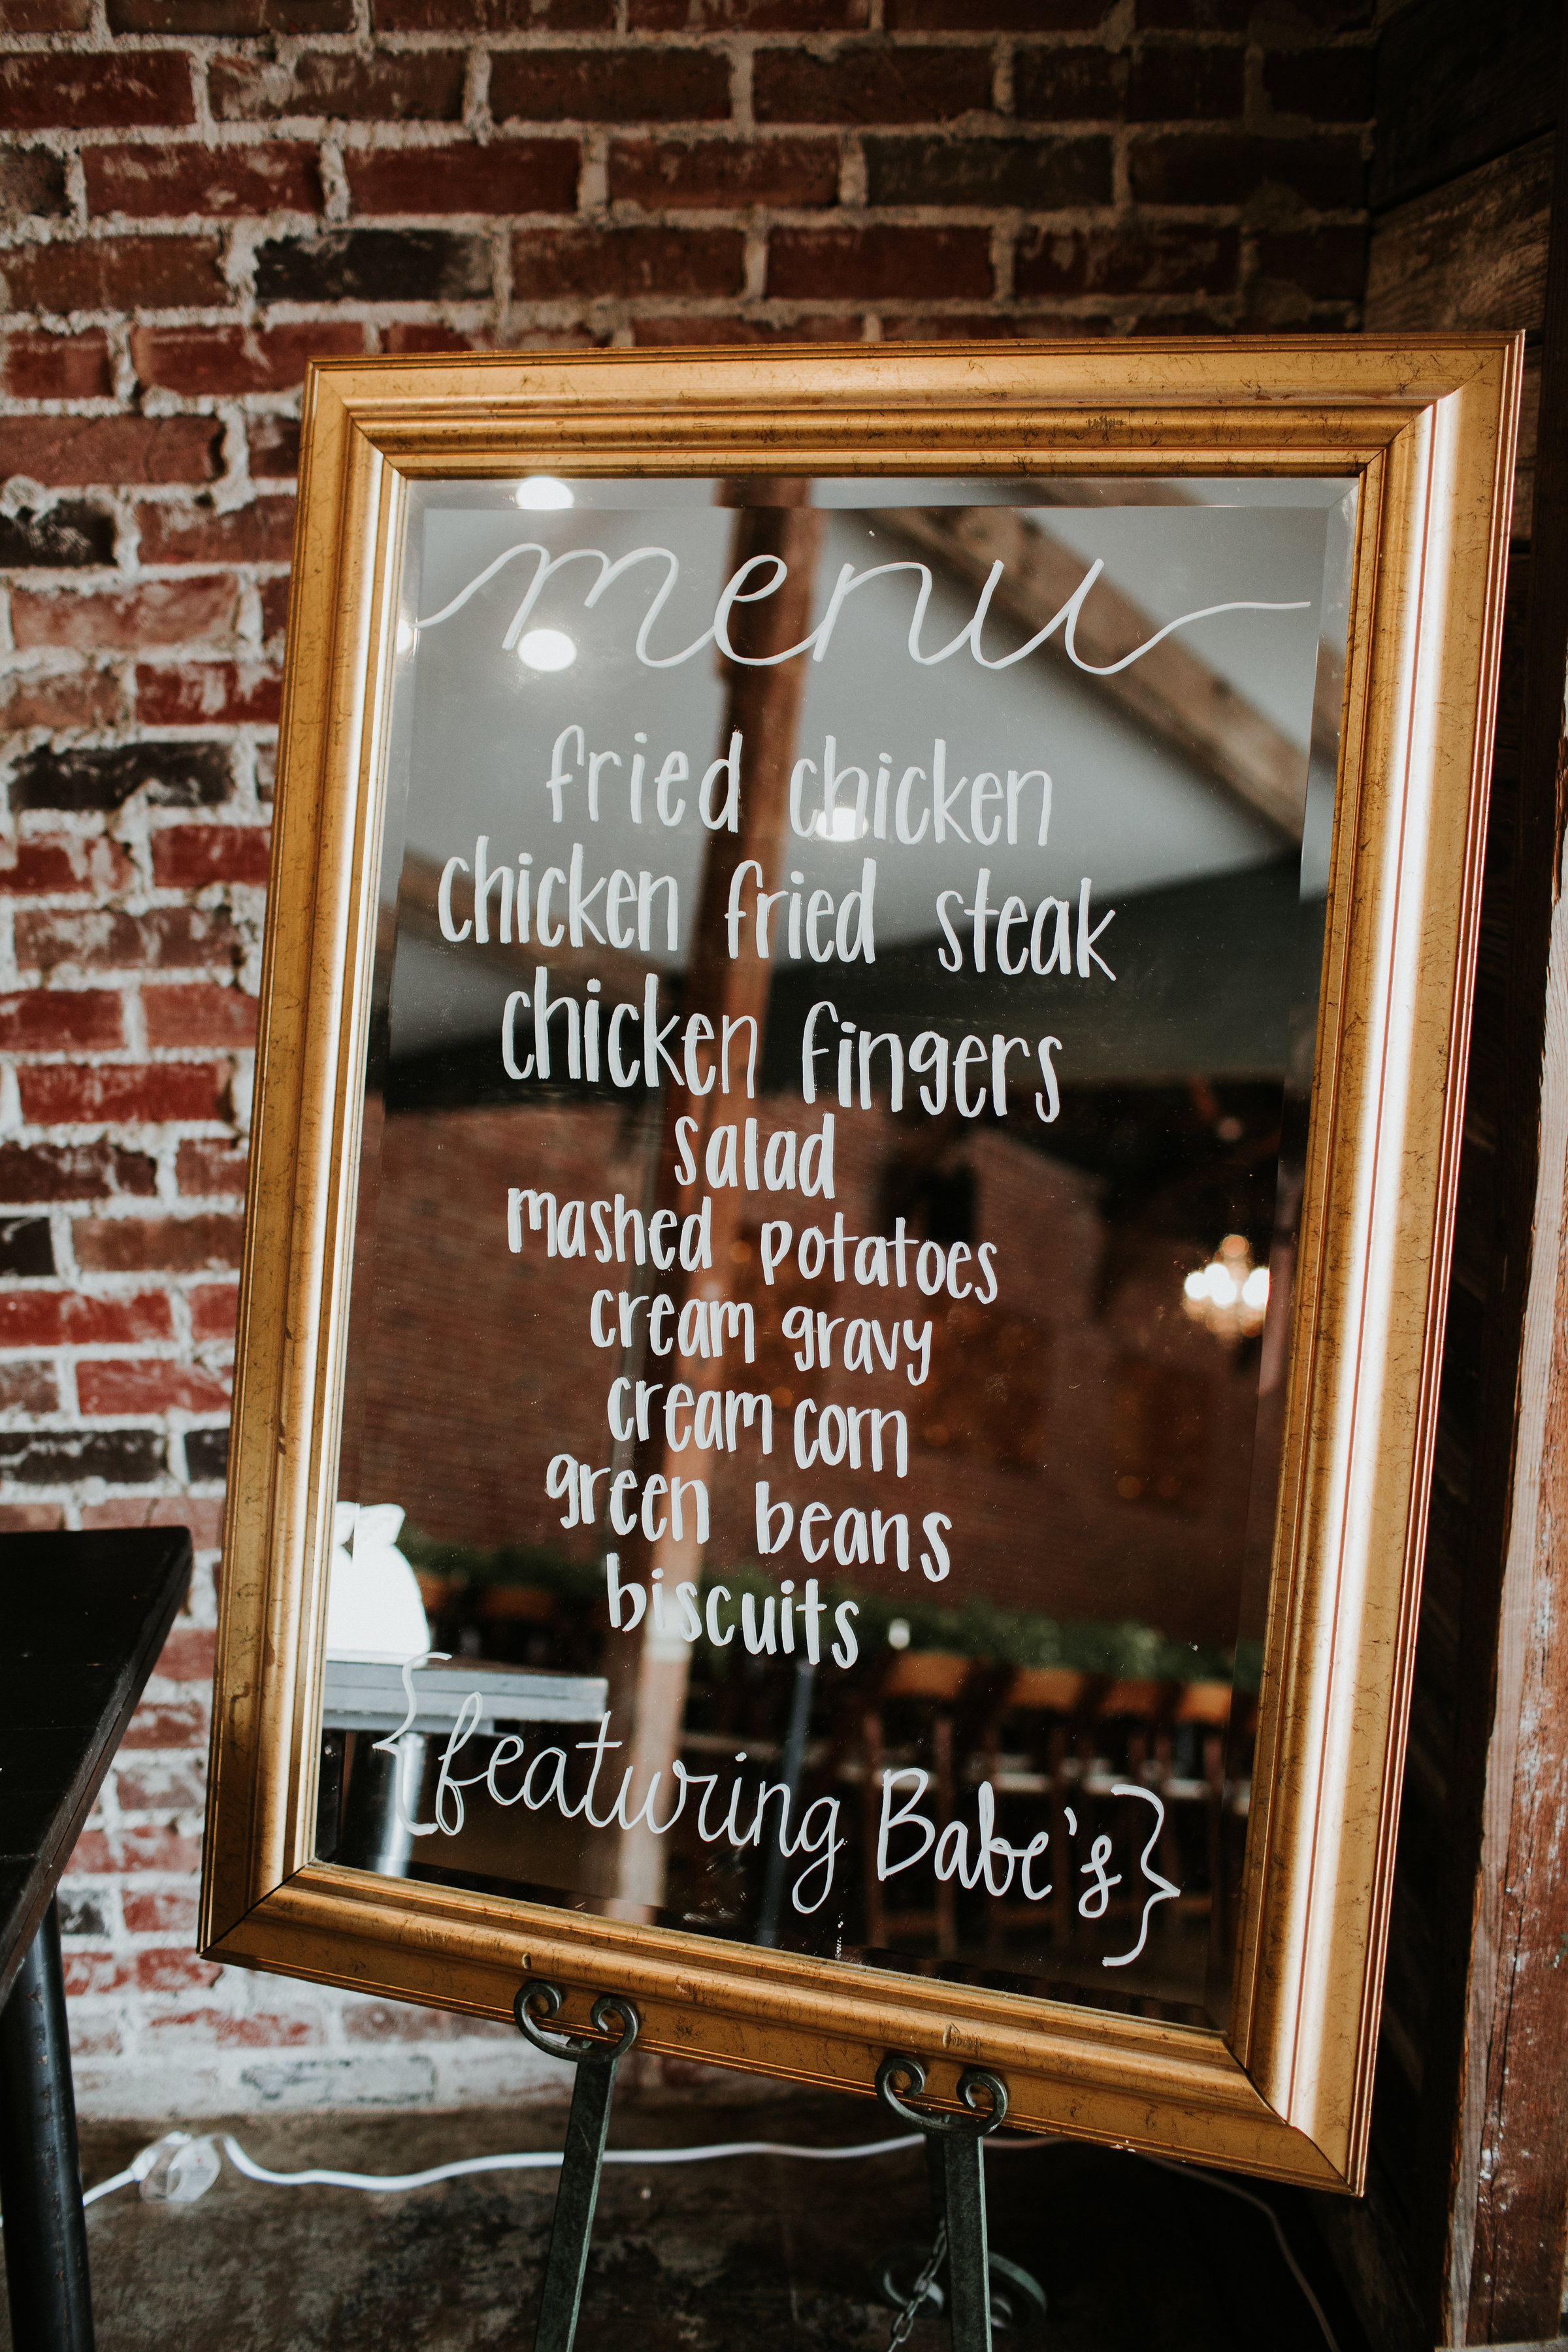 menu
fried chicken
chicken fried steak
chicken fingers
salad
mashed potatoes
cream gravy
cream corn
green beans
biscuits
{featuring Babe's}